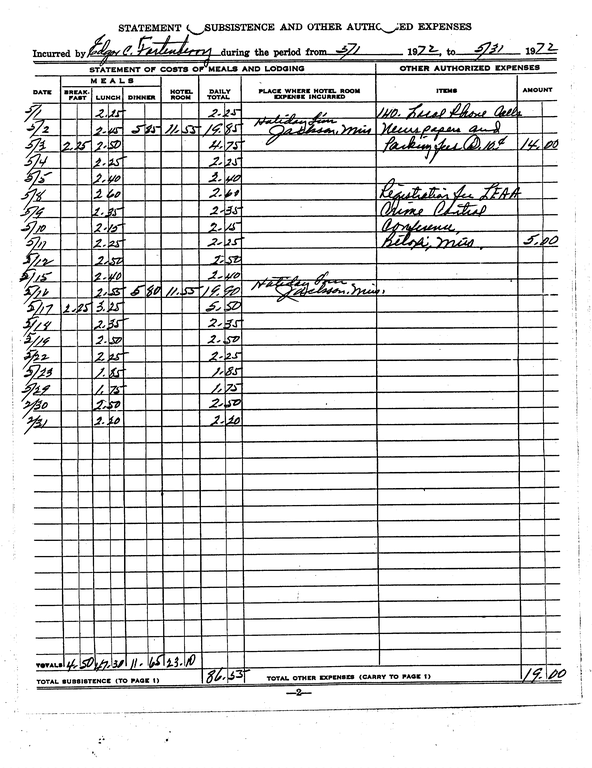 STATEMENT SUBSISTENCE AND OTHER EXPENSES
Incurred by Edgar C. Fortenberry during the period from 5/1 1972, to 5/31 1972
STATEMENT OF COSTS OF MEALS AND LODGING OTHER AUTHORIZED EXPENSES
MEALS
DATE BREAK-FAST LUNCH DINNER HOTEL ROOM DAILY TOTAL PLACE WHERE HOTEL ROOM EXPENSE INCURRED ITEMS AMOUNT
5/1 2.25 2.25 140. Local Phone Calls
5/2 2.45 5 85 11.55 19.85 Holiday Inn Jackson, Miss Newspapers and
5/3 2.25 2.50 4.75 Parking fees @ 10¢ 14.00
5/4 2.25 2.25
5/5 2.40 2.40
5/8 2 60 2.60 Registration fee LEAA
5/9 2.35 2.35 Crime Control
5/10 2.15 2.15 Conference,
5/11 2.25 2.25 Biloxi, Miss. 5.00
5/12 2.50 2.50
5/15 2.40 2.40
5/16 2.55 5 80 11.55 19.90 Holiday Inn Jackson, Miss.
5/17 2.25 3.25 5.50
5/18 2.35 2.35
5/19 2.50 2.50
5/22 2.25 2.25
5/23 1.85 1.85
5/29 1.75 1.75
2/30 2.50 2.50
2/31 2.20 2.20
TOTALS 4.50 47.30 11.65 23.10
TOTAL SUBSISTENCE (TO PAGE 1) 86.55 TOTAL OTHER EXPENSES (CARRY TO PAGE 1) 19.00
—2—